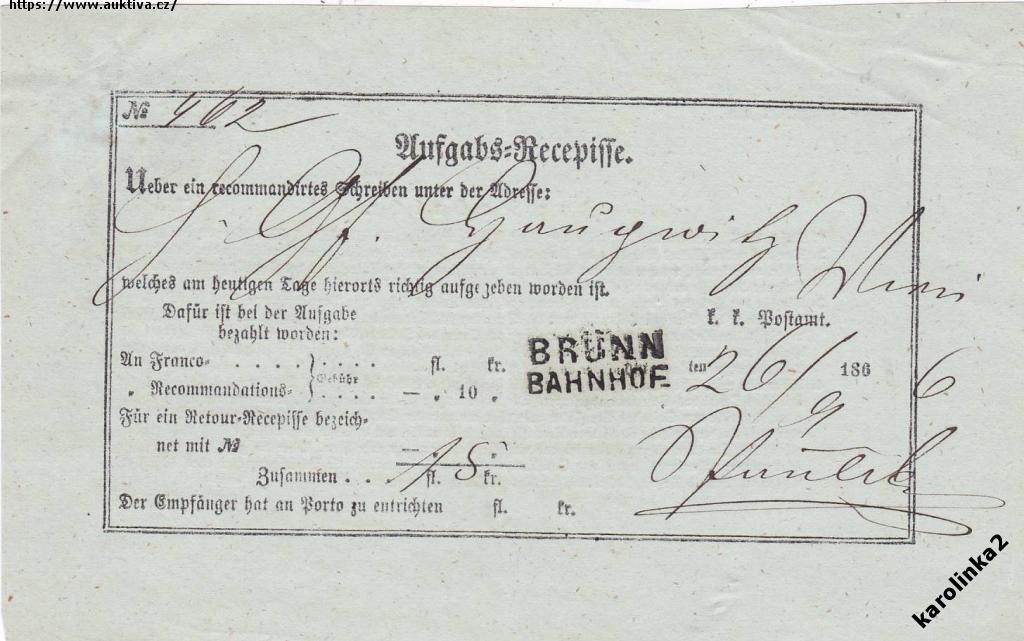 https://www.auktiva.cz/
№ 462
Aufgabs-Recepisse.
Ueber ein recommandirtes Schreiben unter der Adresse:
Gf. Gaugwitz Wien
welches am heutigen Tage hierorts richtig aufgegeben worden ist.
Dafür ist bei der Aufgabe
bezahlt worden:
k. k. Postamt.
An Franco- . . . . . . . . fl. kr.
Gebühr
„ Recommandations- . . . . — „ 10 „
BRÜNN
BAHNHOF
ten 26/9 1866
Für ein Retour-Recepisse bezeich-
net mit № — „ „
Zusammen . . . fl. 15 kr.
Der Empfänger hat an Porto zu entrichten fl. kr.
karolinka2